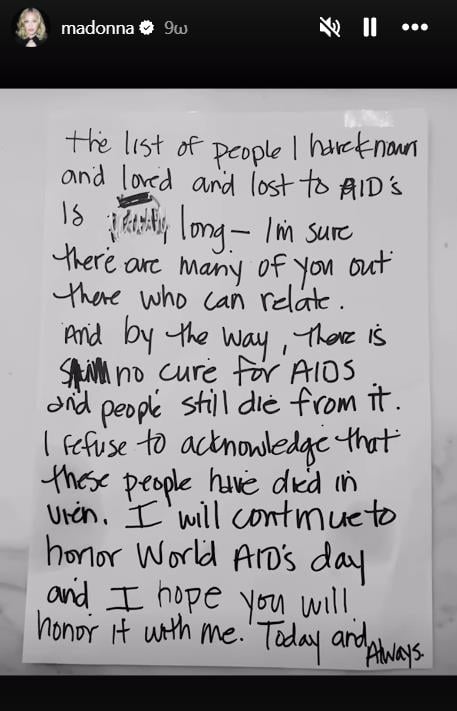 madonna 9ω
the list of people I have known
and loved and lost to AID's
Is long – Im sure
there are many of you out
there who can relate.
And by the way, there is
no cure for AIDS
and people still die from it.
I refuse to acknowledge that
these people have died in
vien. I will continue to
honor World AID's day
and I hope you will
honor it with me. Today and Always.